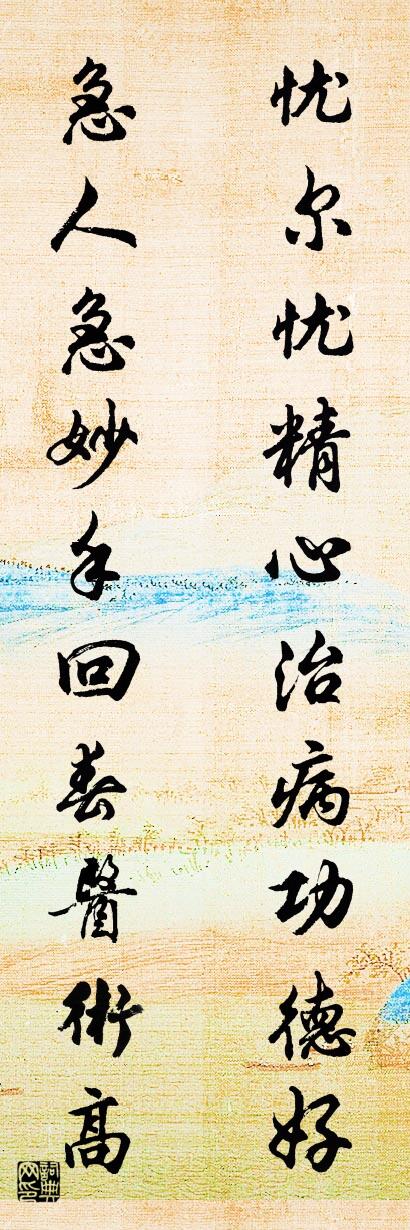 忧尔忧精心治病功德好
急人急妙手回春醫術高
詞典网印